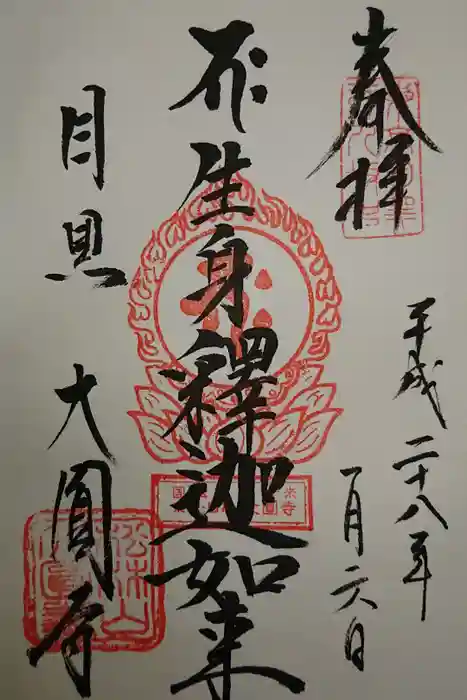 奉拝
平成二十八年
一月六日
生身釋迦如来
目黒
大圓寺
松林山